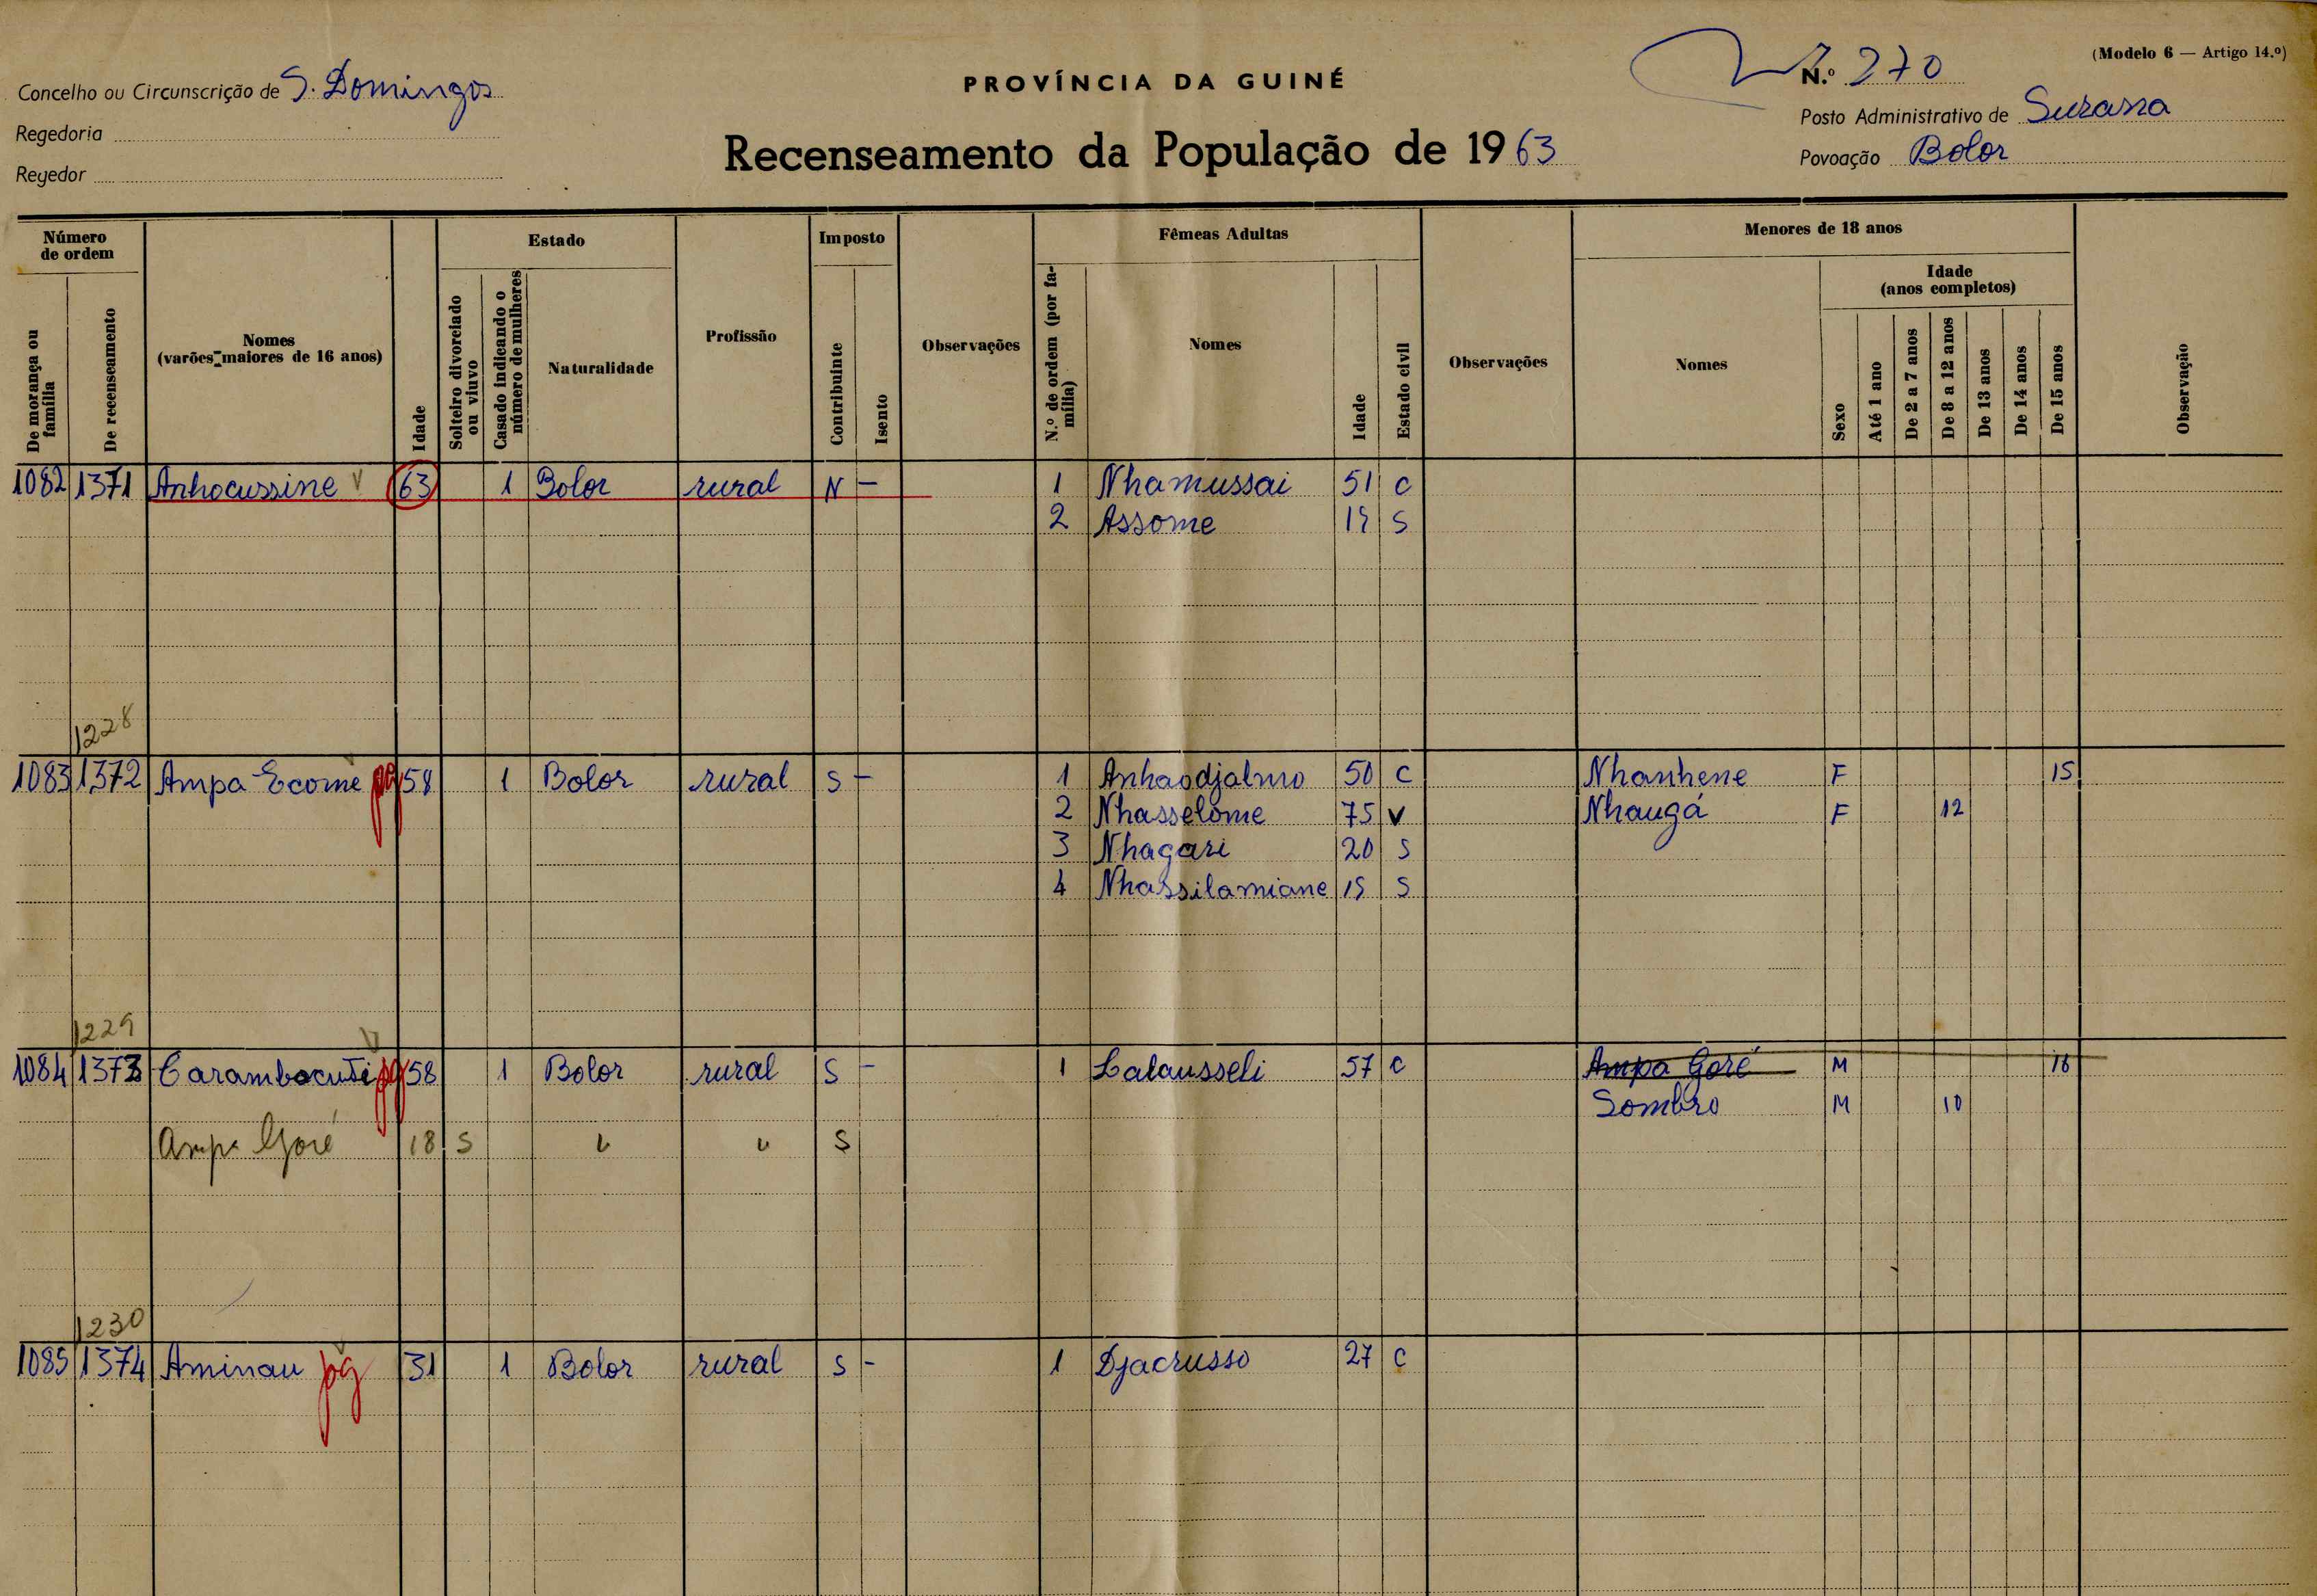 (Modelo 6 — Artigo 14.º)
PROVÍNCIA DA GUINÉ
N.º 270
Concelho ou Circunscrição de S. Domingos
Posto Administrativo de Suzana
Regedoria
Recenseamento da População de 1963
Povoação Bolor
Regedor
Número de ordem
De morança ou família
De recenseamento
Nomes
(varões maiores de 16 anos)
Idade
Estado
Solteiro divorciado ou viuvo
Casado indicando o número de mulheres
Naturalidade
Profissão
Imposto
Contribuinte
Isento
Observações
Fêmeas Adultas
N.º de ordem (por família)
Nomes
Idade
Estado civil
Observações
Menores de 18 anos
Nomes
Sexo
Idade
(anos completos)
Até 1 ano
De 2 a 7 anos
De 8 a 12 anos
De 13 anos
De 14 anos
De 15 anos
Observação
1082 1371 Anhocussine V 63 1 Bolor rural N — 1 Nhamussai 51 C
2 Assome 19 S
1228
1083 1372 Ampa Ecome pg 58 1 Bolor rural S — 1 Anhaodjalmo 50 C Nhanhene F 15
2 Nhasselome 75 V Nhaugá F 12
3 Nhagari 20 S
4 Nhassilamiane 19 S
1229
1084 1373 Carambacuti pg 58 1 Bolor rural S — 1 Lalausseli 57 C Ampa Goré M 16
Sombro M 10
Ampa Goré 18 S " " S
1230
1085 1374 Aminau pg 31 1 Bolor rural S - 1 Djacrusso 27 C